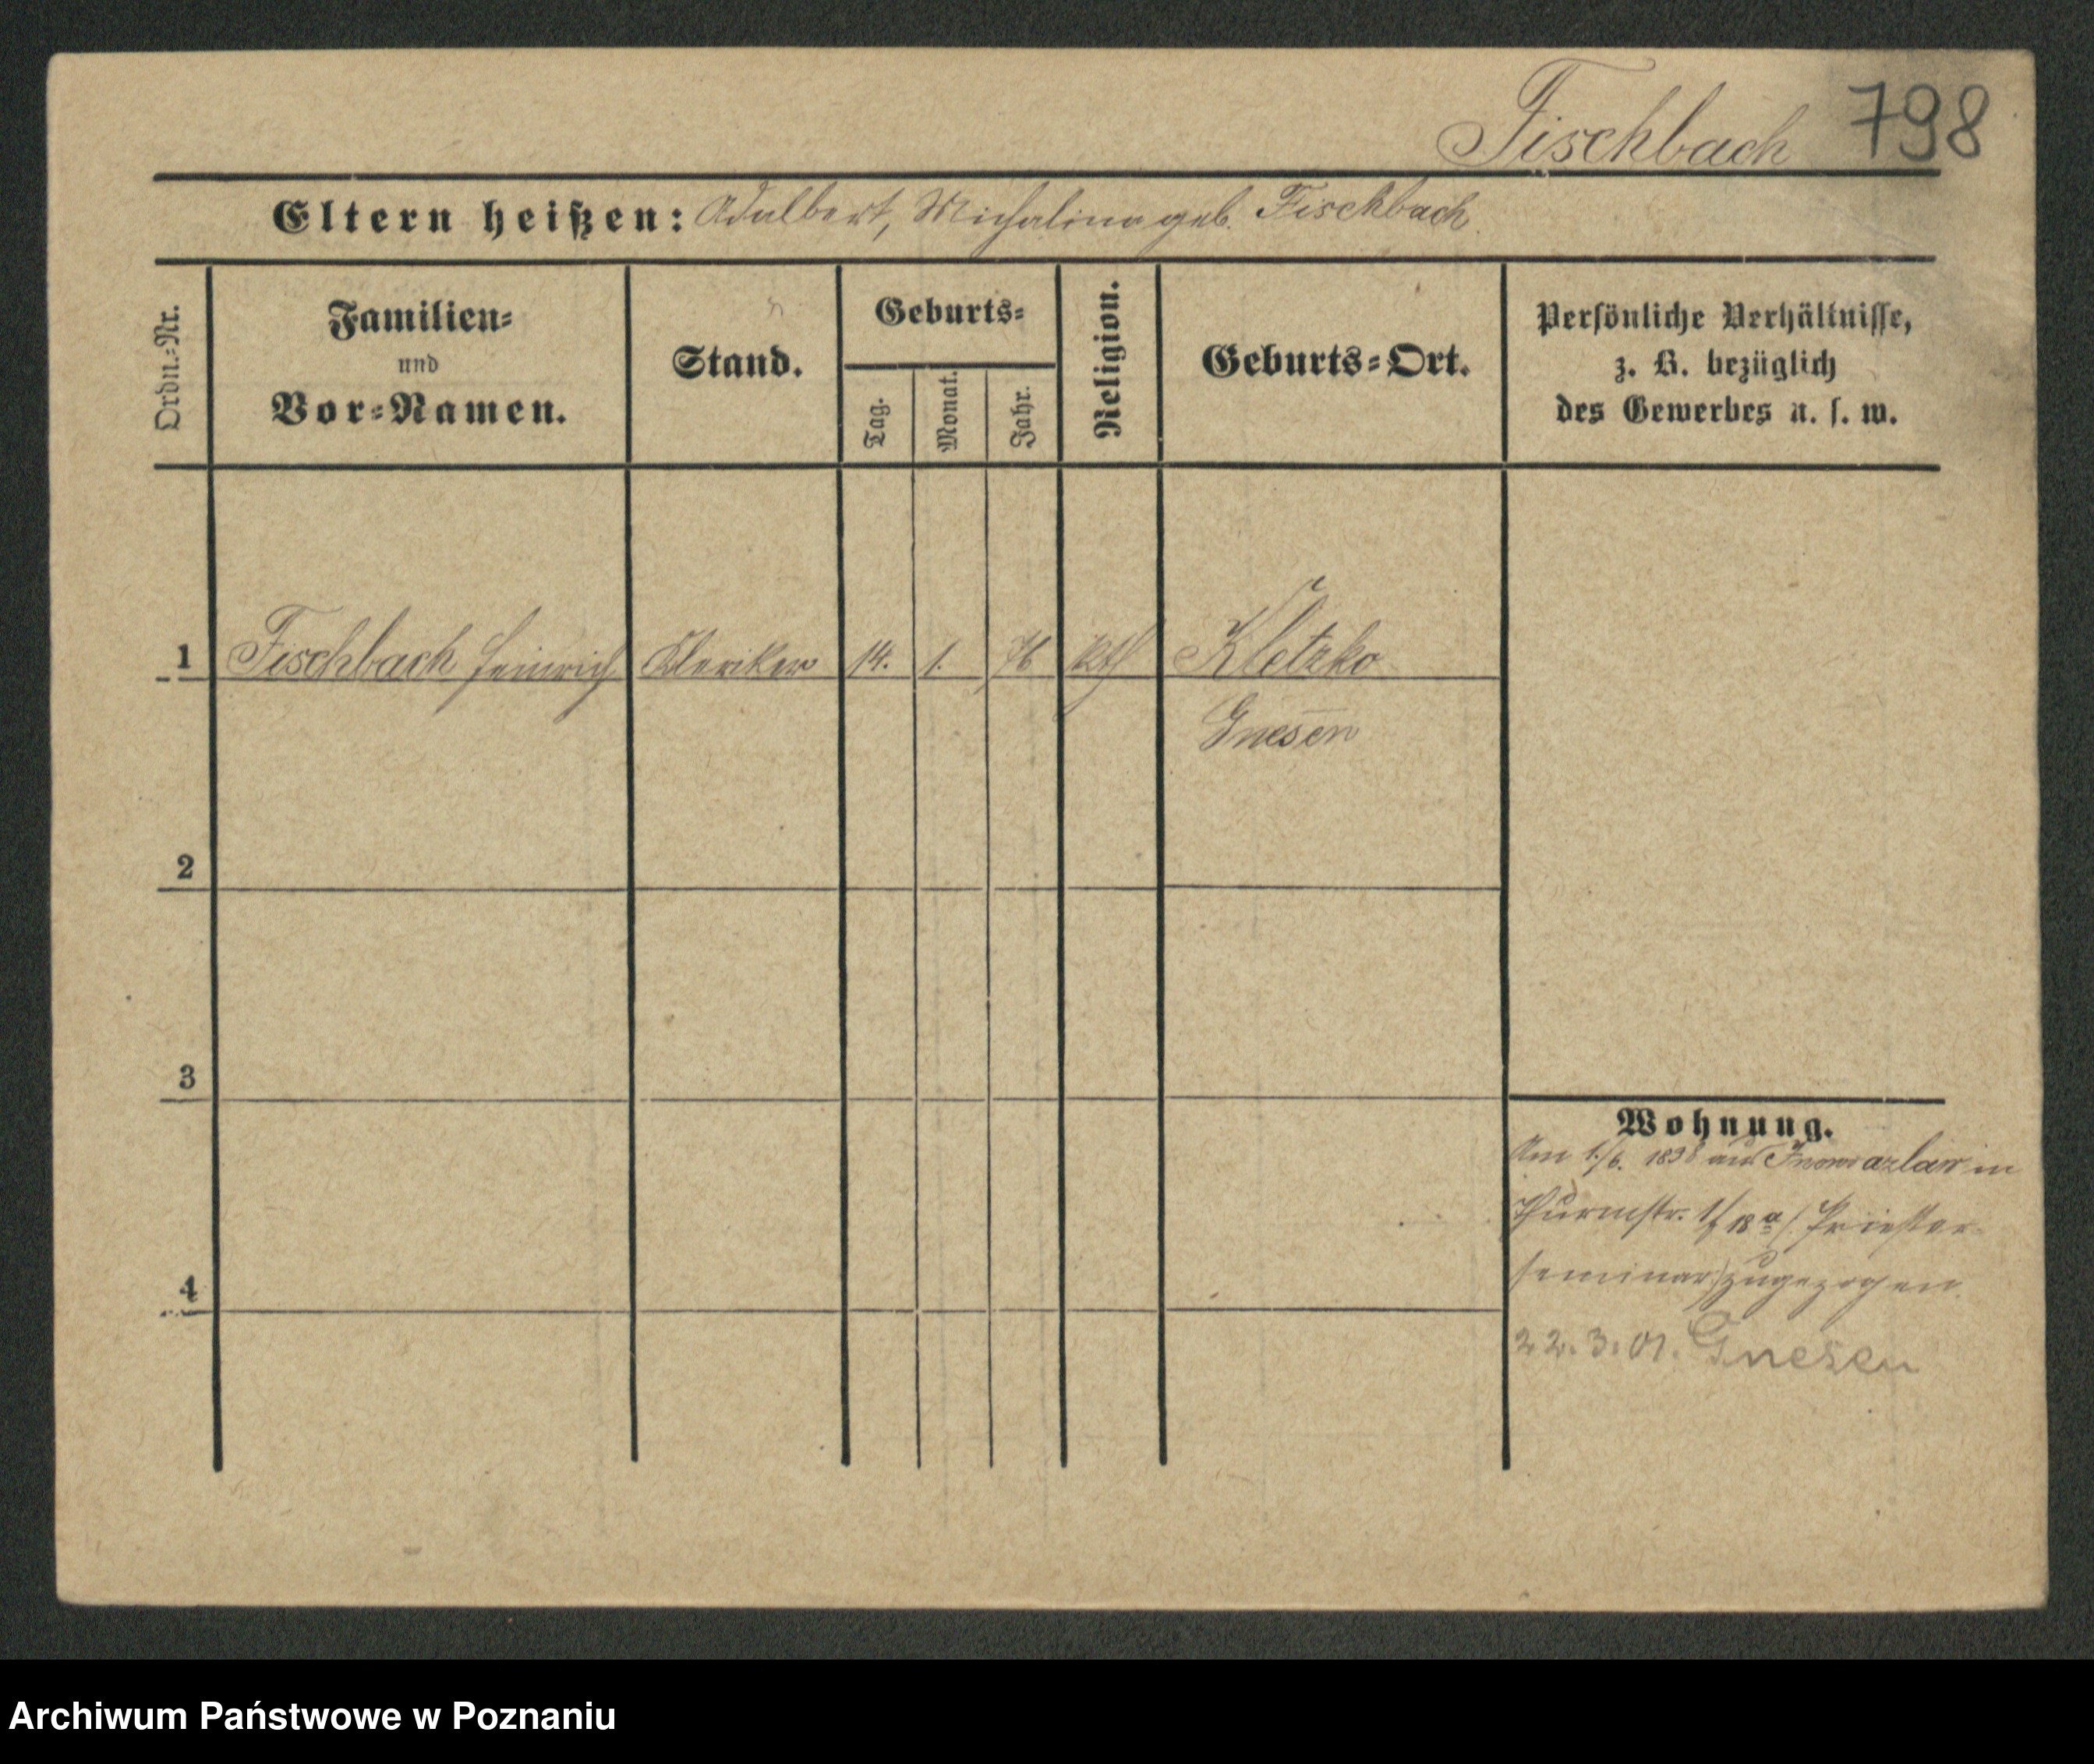 Fischbach 798
Eltern heißen: Adalbert, Michalina geb. Fischbach.
Ordn.-Nr.
Familien-
und
Vor-Namen.
Stand.
Geburts-
Tag.
Monat.
Jahr.
Religion.
Geburts-Ort.
Persönliche Verhältnisse,
z. B. bezüglich
des Gewerbes u. s. w.
1 Fischbach Heinrich Kleriker 14. 1. 76 kth Kletzko
Gnesen
2
3
4
Wohnung.
Am 1./6. 1898 aus Inowrazlaw in
Thurmstr. 18 a (Priester
seminar) zugezogen.
22.3.01. Gnesen
Archiwum Państwowe w Poznaniu